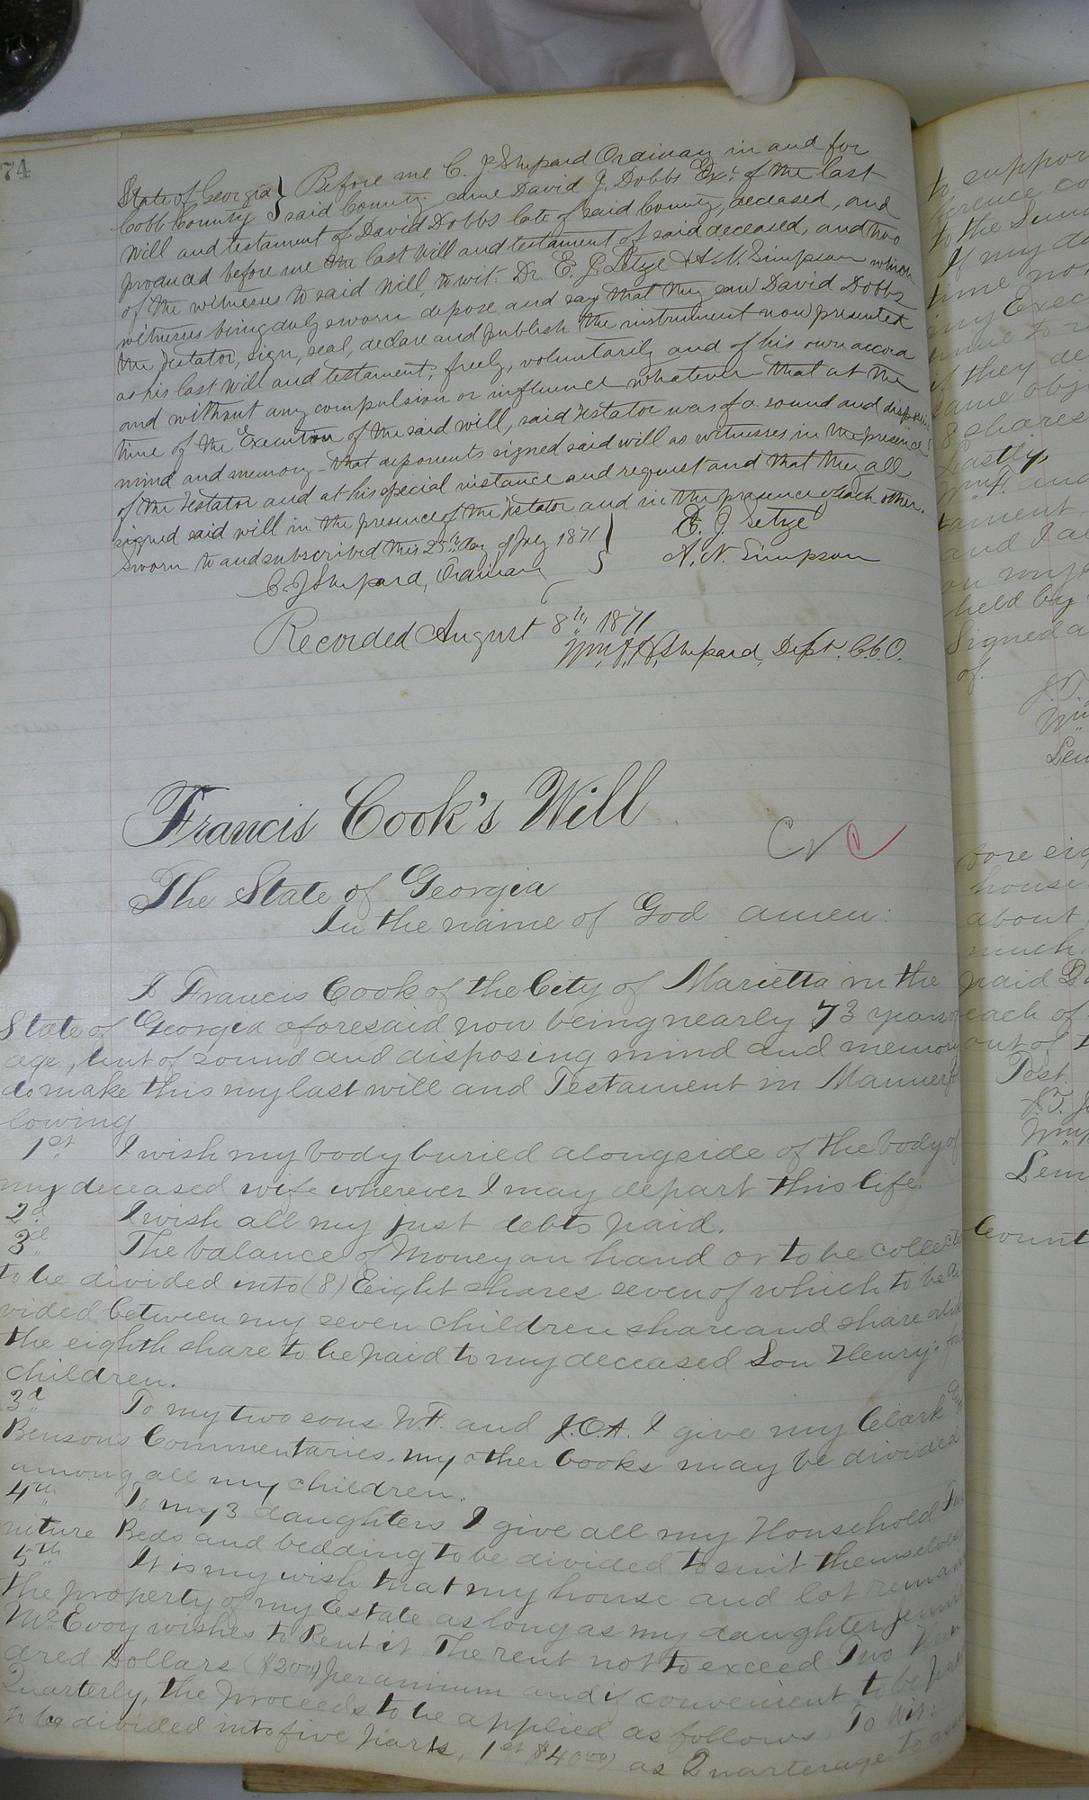 74
State of Georgia } Before me C. J. Shepard Ordinary in and for
Cobb County } said County, came David J. Dobbs Exr. of the last
Will and testament of David Dobbs late of said County, deceased, and
produced before me the last will and testament of said deceased, and two
of the witnesses to said Will, to wit: Dr. E. J. Setze & A. N. Simpson which
witnesses being duly sworn depose and say that they saw David Dobbs
the Testator, sign, seal, declare and publish the instrument now presented
as his last will and testament, freely, voluntarily and of his own accord
and without any compulsion or influence whatever that at the
time of the Execution of the said will, said Testator was of a sound and disposing
mind and memory - that deponents signed said will as witnesses in the presence
of the Testator and at his special instance and request and that they all
signed said will in the presence of the Testator and in the presence of each other.
Sworn to and subscribed this day of July 1871 } E. J. Setze
C. J. Shepard, Ordinary } A. N. Simpson
Recorded August 8th, 1871
Wm. Shepard, Dept. C.C.O.
Francis Cook's Will
The State of Georgia
In the name of God amen:
I Francis Cook of the City of Marietta in the
State of Georgia aforesaid now being nearly 73 years
age, but of sound and disposing mind and memory
do make this my last will and Testament in Manner fol
lowing
1st I wish my body buried alongside of the body of
my deceased wife wherever I may depart this life.
2d I wish all my just debts paid.
3d The balance of Money on hand or to be collect
to be divided into (8) Eight shares seven of which to be di
vided between my seven children share and share alike
the eighth share to be paid to my deceased Son Henry's
children.
3d To my two sons W.F. and J.O.A. I give my Clark
Bensons Commentaries. my other books may be divided
among all my children.
4th To my 3 daughters I give all my Household Fur
niture Beds and bedding to be divided to suit themselves
5th It is my wish that my house and lot remain
the property of my Estate as long as my daughter Jennie
McEvoy wishes to Rent it The rent not to exceed Two Hun
dred Dollars ($200) per annum and if convenient to be paid
Quarterly, the proceeds to be applied as follows. To Wit:
to be divided into five parts, 1st $40.00 as Quarterage to